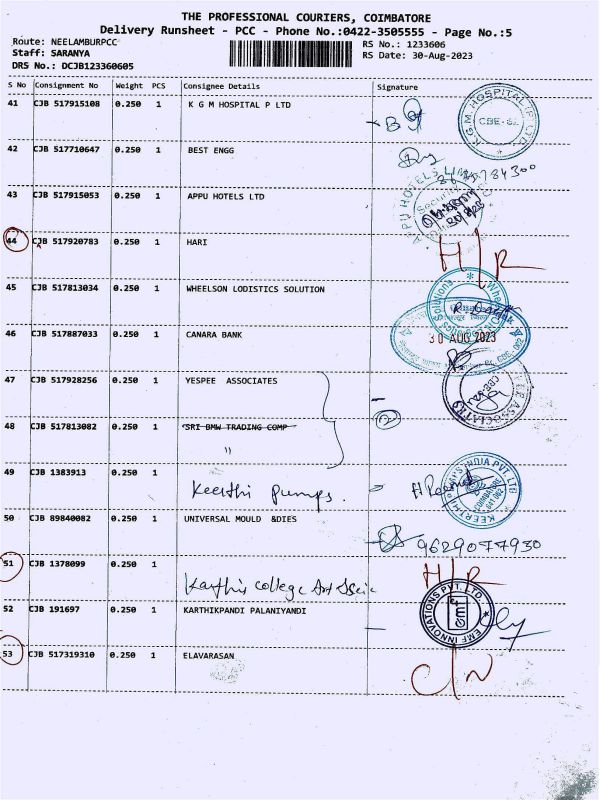 THE PROFESSIONAL COURIERS, COIMBATORE
Delivery Runsheet - PCC - Phone No.:0422-3505555 - Page No.:5
Route: NEELAMBURPCC
RS No.: 1233606
Staff: SARANYA
RS Date: 30-Aug-2023
DRS No.: DCJB123360605
S No Consignment No Weight PCS Consignee Details Signature
41 CJB 517915108 0.250 1 K G M HOSPITAL P LTD
42 CJB 517710647 0.250 1 BEST ENGG
43 CJB 517915053 0.250 1 APPU HOTELS LTD
44 CJB 517920783 0.250 1 HARI
45 CJB 517813034 0.250 1 WHEELSON LODISTICS SOLUTION
46 CJB 517887033 0.250 1 CANARA BANK
30 AUG 2023
47 CJB 517928256 0.250 1 YESPEE ASSOCIATES
48 CJB 517813082 0.250 1 SRI BMW TRADING COMP
"
2
49 CJB 1383913 0.250 1
Keerthi pumps.
50 CJB 89840082 0.250 1 UNIVERSAL MOULD &DIES
9629077930
51 CJB 1378099 0.250 1
Karthis college Art
52 CJB 191697 0.250 1 KARTHIKPANDI PALANIYANDI
EMF INNOVATIONS PVT. LTD.
emf
53 CJB 517319310 0.250 1 ELAVARASAN